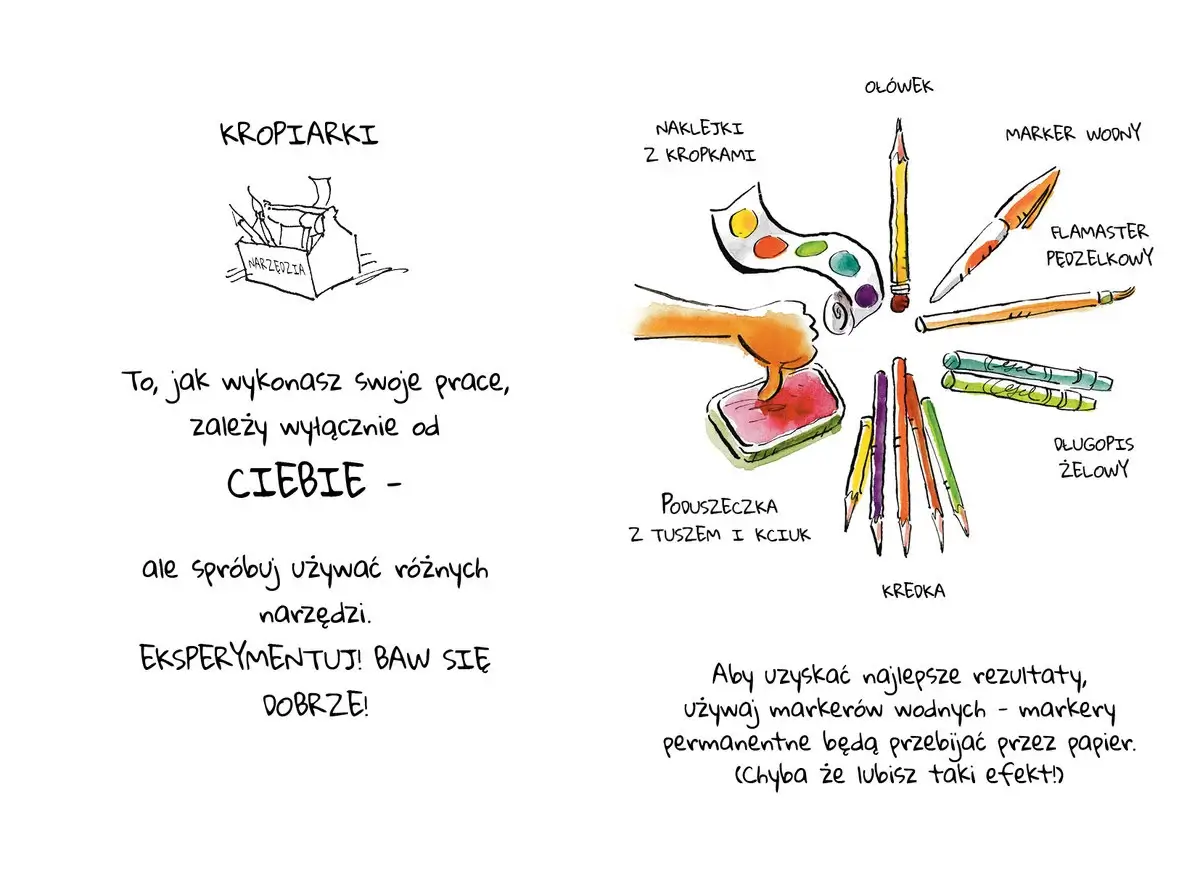 KROPIARKI
NARZĘDZIA
To, jak wykonasz swoje prace,
zależy wyłącznie od
CIEBIE -
ale spróbuj używać różnych
narzędzi.
EKSPERYMENTUJ! BAW SIĘ
DOBRZE!
OŁÓWEK
NAKLEJKI
Z KROPKAMI
MARKER WODNY
FLAMASTER
PĘDZELKOWY
DŁUGOPIS
ŻELOWY
PODUSZECZKA
Z TUSZEM I KCIUK
KREDKA
Aby uzyskać najlepsze rezultaty,
używaj markerów wodnych - markery
permanentne będą przebijać przez papier.
(Chyba że lubisz taki efekt!)